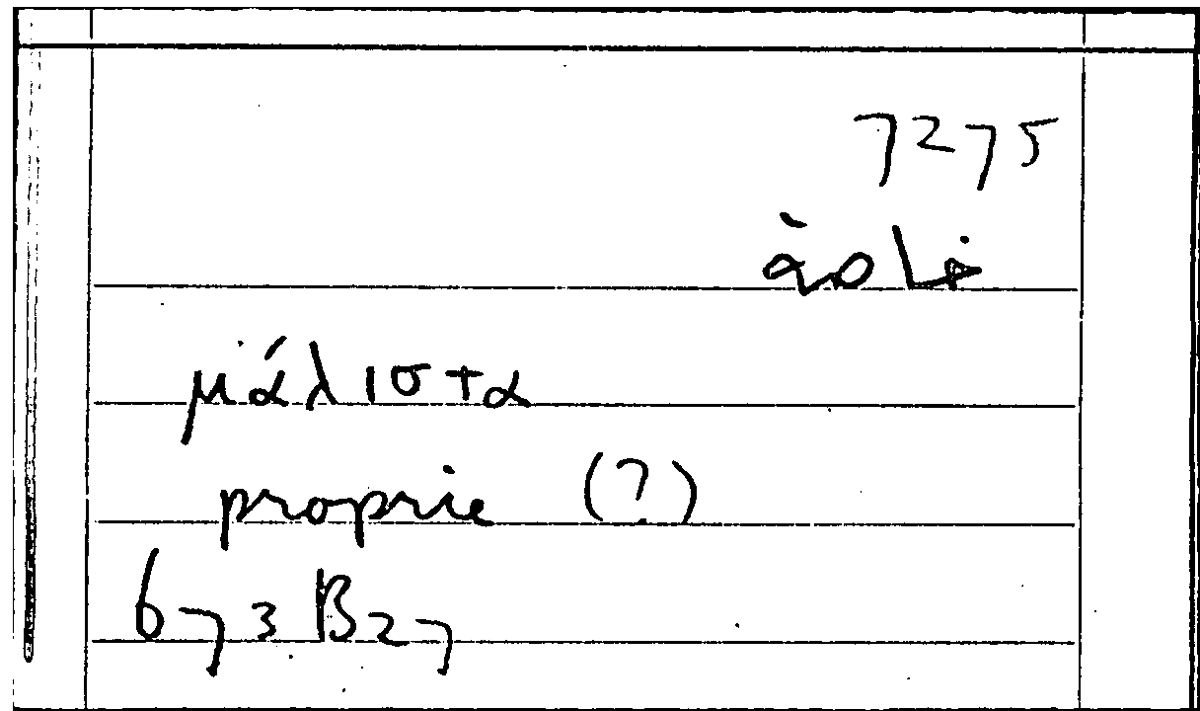 7275
μάλιστα
proprie (?)
673B27